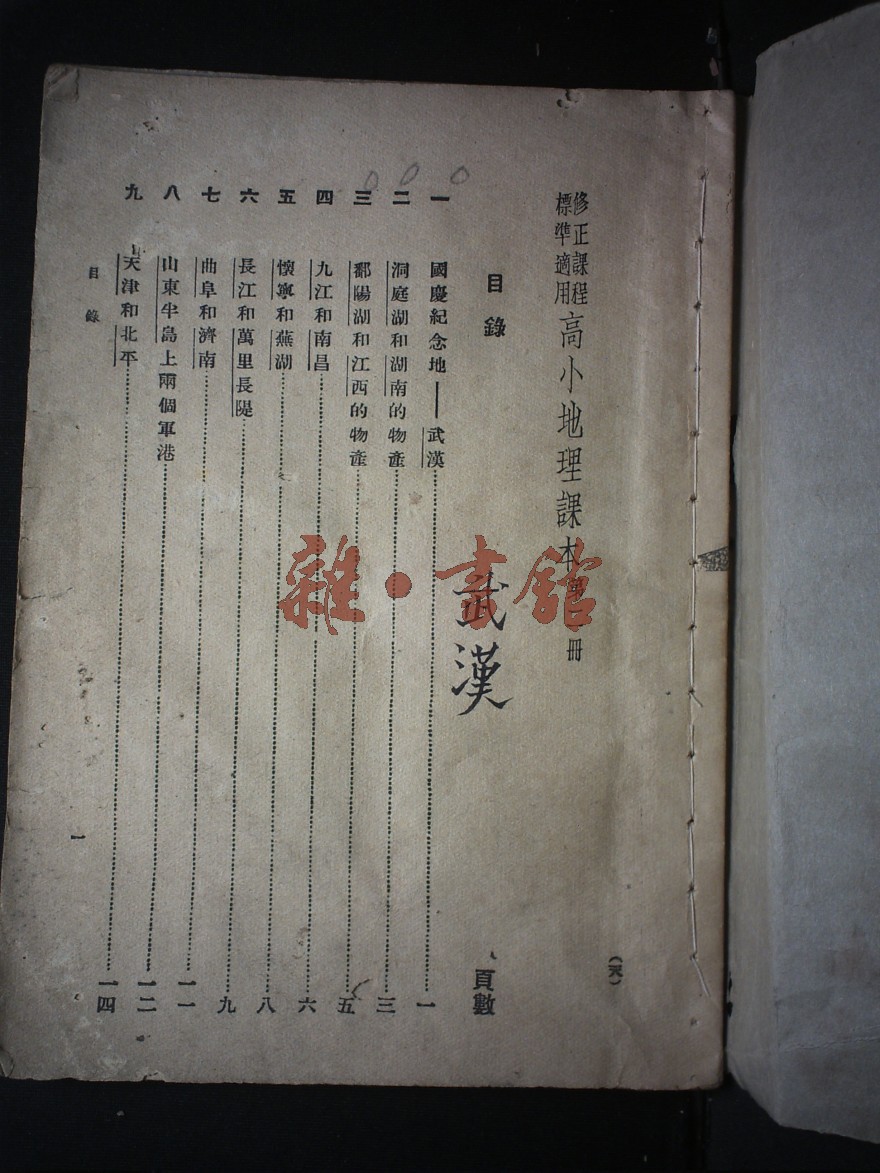 修正課程標準適用 高小地理課本 第二冊
(天)
目錄
頁數
一 國慶紀念地——武漢 一
二 洞庭湖和湖南的物產 三
三 鄱陽湖和江西的物產 五
四 九江和南昌 六
五 懷寧和蕪湖 八
六 長江和萬里長隄 九
七 曲阜和濟南 一一
八 山東半島上兩個軍港 一二
九 天津和北平 一四
目錄
一
武漢
雜·書館